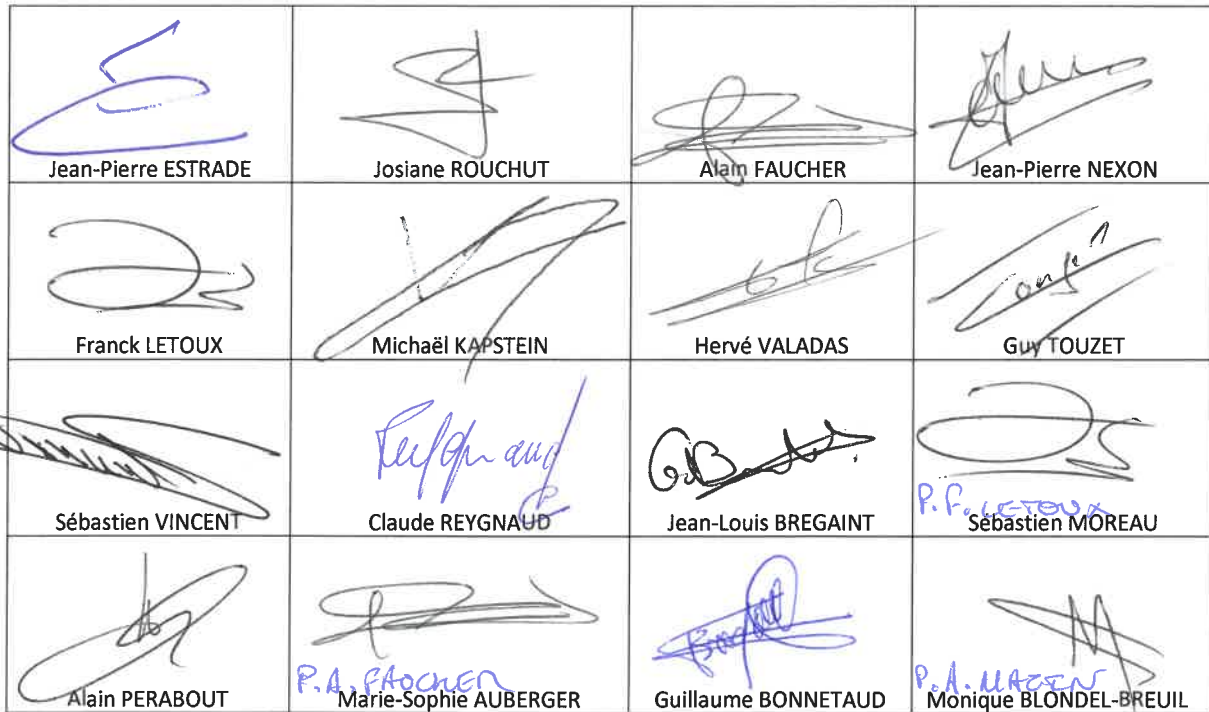 Jean-Pierre ESTRADE
Josiane ROUCHUT
Alain FAUCHER
Jean-Pierre NEXON
Franck LETOUX
Michaël KAPSTEIN
Hervé VALADAS
Guy TOUZET
Reygnaud
P.F. LETOUX
Sébastien VINCENT
Claude REYGNAUD
Jean-Louis BREGAINT
Sébastien MOREAU
P.A. FAOCHER
P.A. MAZEN
Alain PERABOUT
Marie-Sophie AUBERGER
Guillaume BONNETAUD
Monique BLONDEL-BREUIL